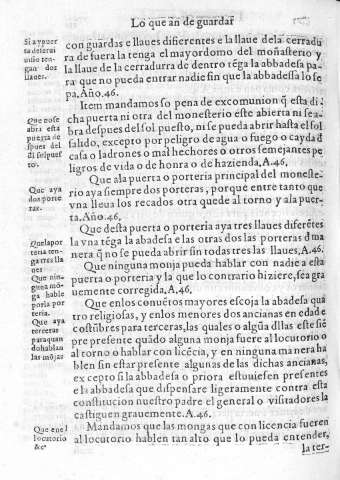 Lo que añ de guardar
Si ay puer
ta deferai
unio ten-
gan dos
llaues.
con guardas e llaues difierentes e la llaue dela cerradu
ra de fuera la tenga el mayordomo del moñasterio y
la llaue de la cerradura de dentro tẽga la abbadesa pa-
ra que no pueda entrar nadie sin que la abbadessa lo se
pa, Año.46.
Que no se
abra esta
puerta de
spues del
sol puesto.
Item mandamos so pena de excomunion q̃ esta di-
cha puerta ni otra del monesterio este abierta ni se a-
bra despues del sol puesto, ni se pueda abrir hasta el sol
salido, excepto por peligro de agua o fuego o cayda d̃
casa o ladrones o mal hechores o otros semejantes pe
ligros de vida o de honra o de hazienda, A.46.
Que aya
dos porte
ras.
Que ala puerta o porteria principal del moneste-
rio aya siempre dos porteras, porque entre tanto que
vna lleua los recados otra quede al torno y ala puer-
ta. Año.46.
Que la por
teria ten-
ga tres lla
ues
Que desta puerta o porteria aya tres llaues diferẽtes
la vna tẽga la abadesa e las otras dos las porteras d̃ ma
nera q̃ no se pueda abrir sin todas tres las llaues, A.46.
Que nin-
guna mõ-
ja hable
por la por
teria.
Que ninguna monja pueda hablar con nadie a esta
puerta o porteria y la que lo contrario hiziere, sea gra
uemente corregida, A.46.
Que aya
terceras
para quan
do hablan
las mõjas
Que enlos conuẽtos mayores escoja la abadesa quа
tro religiosas, y enlos menores dos ancianas en edad e
costũbres para terceras, las quales o algũa dllas este siẽ
pre presente quãdo alguna monja fuere al locutorio o
al torno o hablar con licẽcia, y en ninguna manera ha
blen sin estar presente algunas de las dichas ancianas,
excepto si la abbadesa o priora estuuiesen presentes
e la abbadesa que dispensare ligeramente contra esta
constitucion nuestro padre el general o visitadores la
castiguen grauemente. A.46.
Que en el
locutorio
&c
Mandamos que las mongas que con licencia fueren
al locutorio hablen tan alto que lo pueda entender,
la ter-